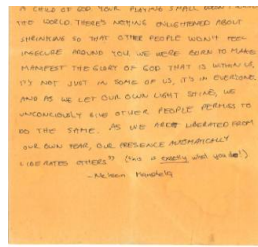 A CHILD OF GOD YOUR PLAYING SMALL DOESN'T SERVE
THE WORLD. THERE'S NOTHING ENLIGHTENED ABOUT
SHRINKING SO THAT OTHER PEOPLE WON'T FEEL
INSECURE AROUND YOU. WE WERE BORN TO MAKE
MANIFEST THE GLORY OF GOD THAT IS WITHIN US
IT'S NOT JUST IN SOME OF US, IT'S IN EVERYONE.
AND AS WE LET OUR OWN LIGHT SHINE, WE
UNCONCIOUSLY GIVE OTHER PEOPLE PERMISS TO
DO THE SAME. AS WE ARE LIBERATED FROM
OUR OWN FEAR, OUR PRESENCE AUTOMATICALLY
LIBERATES OTHERS" (this is exactly what you do!)
- Nelson Mandela